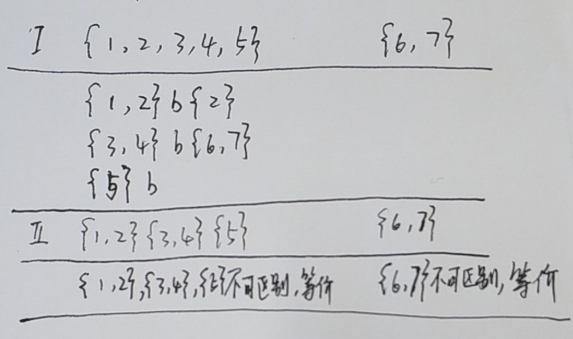 I {1,2,3,4,5} {6,7}
{1,2} b {2}
{3,4} b {6,7}
{5} b
II {1,2} {3,4} {5} {6,7}
{1,2},{3,4},{5}不可区别,等价 {6,7}不可区别,等价